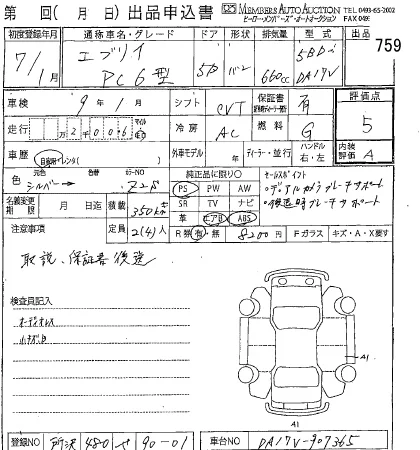 第 回( 月 日) 出品申込書 MEMBERS AUTO AUCTION TEL 0493-65-2002
ビーロー・メンバーズ・オートオークション FAX 049
初度登録年月 通称車名・グレード ドア 形状 排気量 型式 出品 759
7/1月 エブリイ PC 6型 5D バン 660cc 5BD- DA17V
車検 9年 1月 シフト CVT 保証書 有 評価点
走行 万 2千 0 0 6 マイル 冷房 AC 燃料 G 5
車歴 自家用・レンタ( ) 外車モデル ディーラー・並行 ハンドル 右・左 内装評価 A
色 元色 シルバー 色替 カラーNO Z2S 純正品に限り○ セールスポイント
PS PW AW ・デュアルカメラブレーキサポート
SR TV ナビ ・後退時ブレーキサポート
革 エアB ABS
名義変更期限 月 日迄 積載 350kg
注意事項 定員 2(4)人 R類 有・無 8200円 Fガラス キズ・A・X要す
取説、保証書 後送
検査員記入
オーディオレス
小キズ凹
A1
A1
登録NO 所沢 480 や 90-01 車台NO DA17V-907365